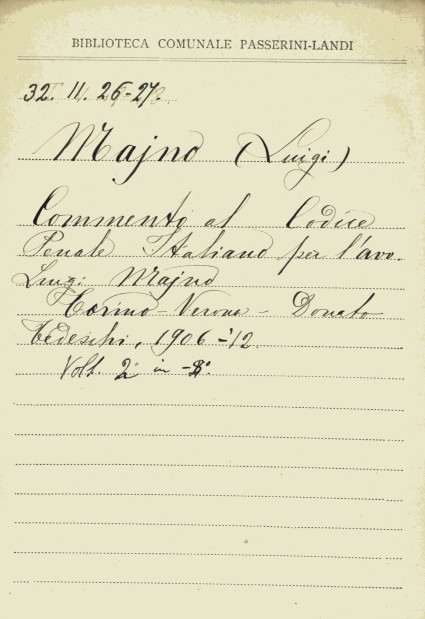 BIBLIOTECA COMUNALE PASSERINI-LANDI
32. 11. 26-27.
Majno (Luigi)
Commento al Codice
Penale Italiano per l'avv.
Luigi Majno
Torino-Verona - Donato
Tedeschi, 1906 -'12.
Voll. 2 in -8°.